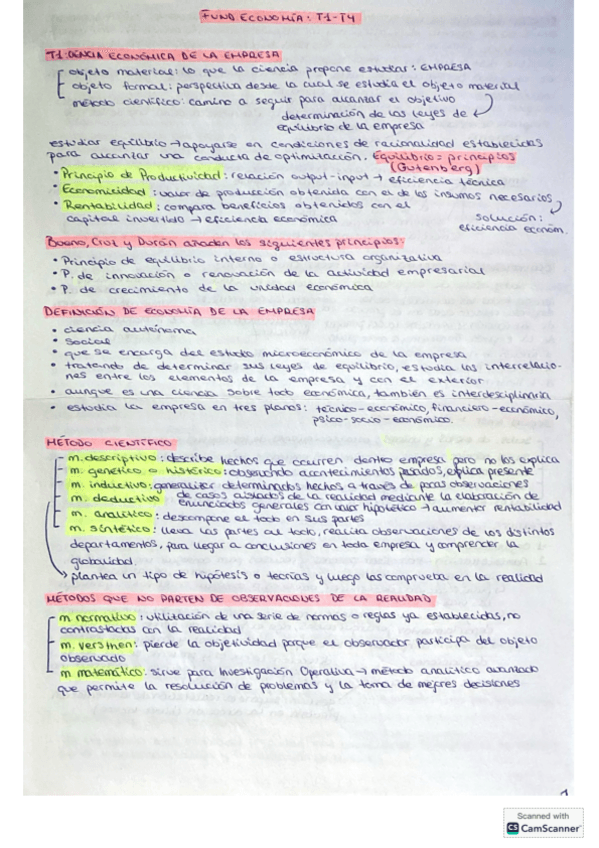 FUND ECONOMÍA: T1-T4
T1: CIENCIA ECONÓMICA DE LA EMPRESA
objeto material: lo que la ciencia propone estudiar: EMPRESA
objeto formal: perspectiva desde la cual se estudia el objeto material
método científico: camino a seguir para alcanzar el objetivo
determinación de las leyes de
equilibrio de la empresa
estudiar equilibrio → apoyarse en condiciones de racionalidad establecidas
para alcanzar una conducta de optimización. Equilibrio = principios
(Gutenberg)
• Principio de Productividad: relación output-input → eficiencia técnica
• Economicidad: valor de producción obtenida con el de los insumos necesarios
• Rentabilidad: compara beneficios obtenidos con el
capital invertido → eficiencia económica
solución:
eficiencia económ.
Bueno, Cruz y Durán añaden los siguientes principios:
• Principio de equilibrio interno o estructura organizativa
• P. de innovación o renovación de la actividad empresarial
• P. de crecimiento de la unidad económica
DEFINICIÓN DE ECONOMÍA DE LA EMPRESA
• ciencia autónoma
• social
• que se encarga del estudio microeconómico de la empresa
• tratando de determinar sus leyes de equilibrio, estudia las interrelacio-
nes entre los elementos de la empresa y con el exterior
• aunque es una ciencia sobre todo económica, también es interdisciplinaria
• estudia la empresa en tres planos: técnico-económico, financiero-económico,
psico-socio-económico.
MÉTODO CIENTÍFICO
m. descriptivo: describe hechos que ocurren dentro empresa pero no los explica
m. genético o histórico: observando acontecimientos pasados, explica presente
m. inductivo: generalizar determinados hechos a través de pocas observaciones
de casos aislados de la realidad mediante la elaboración de
m. deductivo enunciados generales con valor hipotético → aumentar rentabilidad
m. analítico: descompone el todo en sus partes
m. sintético: lleva las partes al todo, realiza observaciones de los distintos
departamentos, para llegar a conclusiones en toda empresa y comprender la
globalidad
plantea un tipo de hipótesis o teorías y luego las comprueba en la realidad
MÉTODOS QUE NO PARTEN DE OBSERVACIONES DE LA REALIDAD
m normativo: utilización de una serie de normas o reglas ya establecidas, no
contrastadas con la realidad
m. versthen: pierde la objetividad porque el observador participa del objeto
observado
m matemático: sirve para Investigación Operativa → método analítico avanzado
que permite la resolución de problemas y la toma de mejores decisiones
1
Scanned with
CS CamScanner